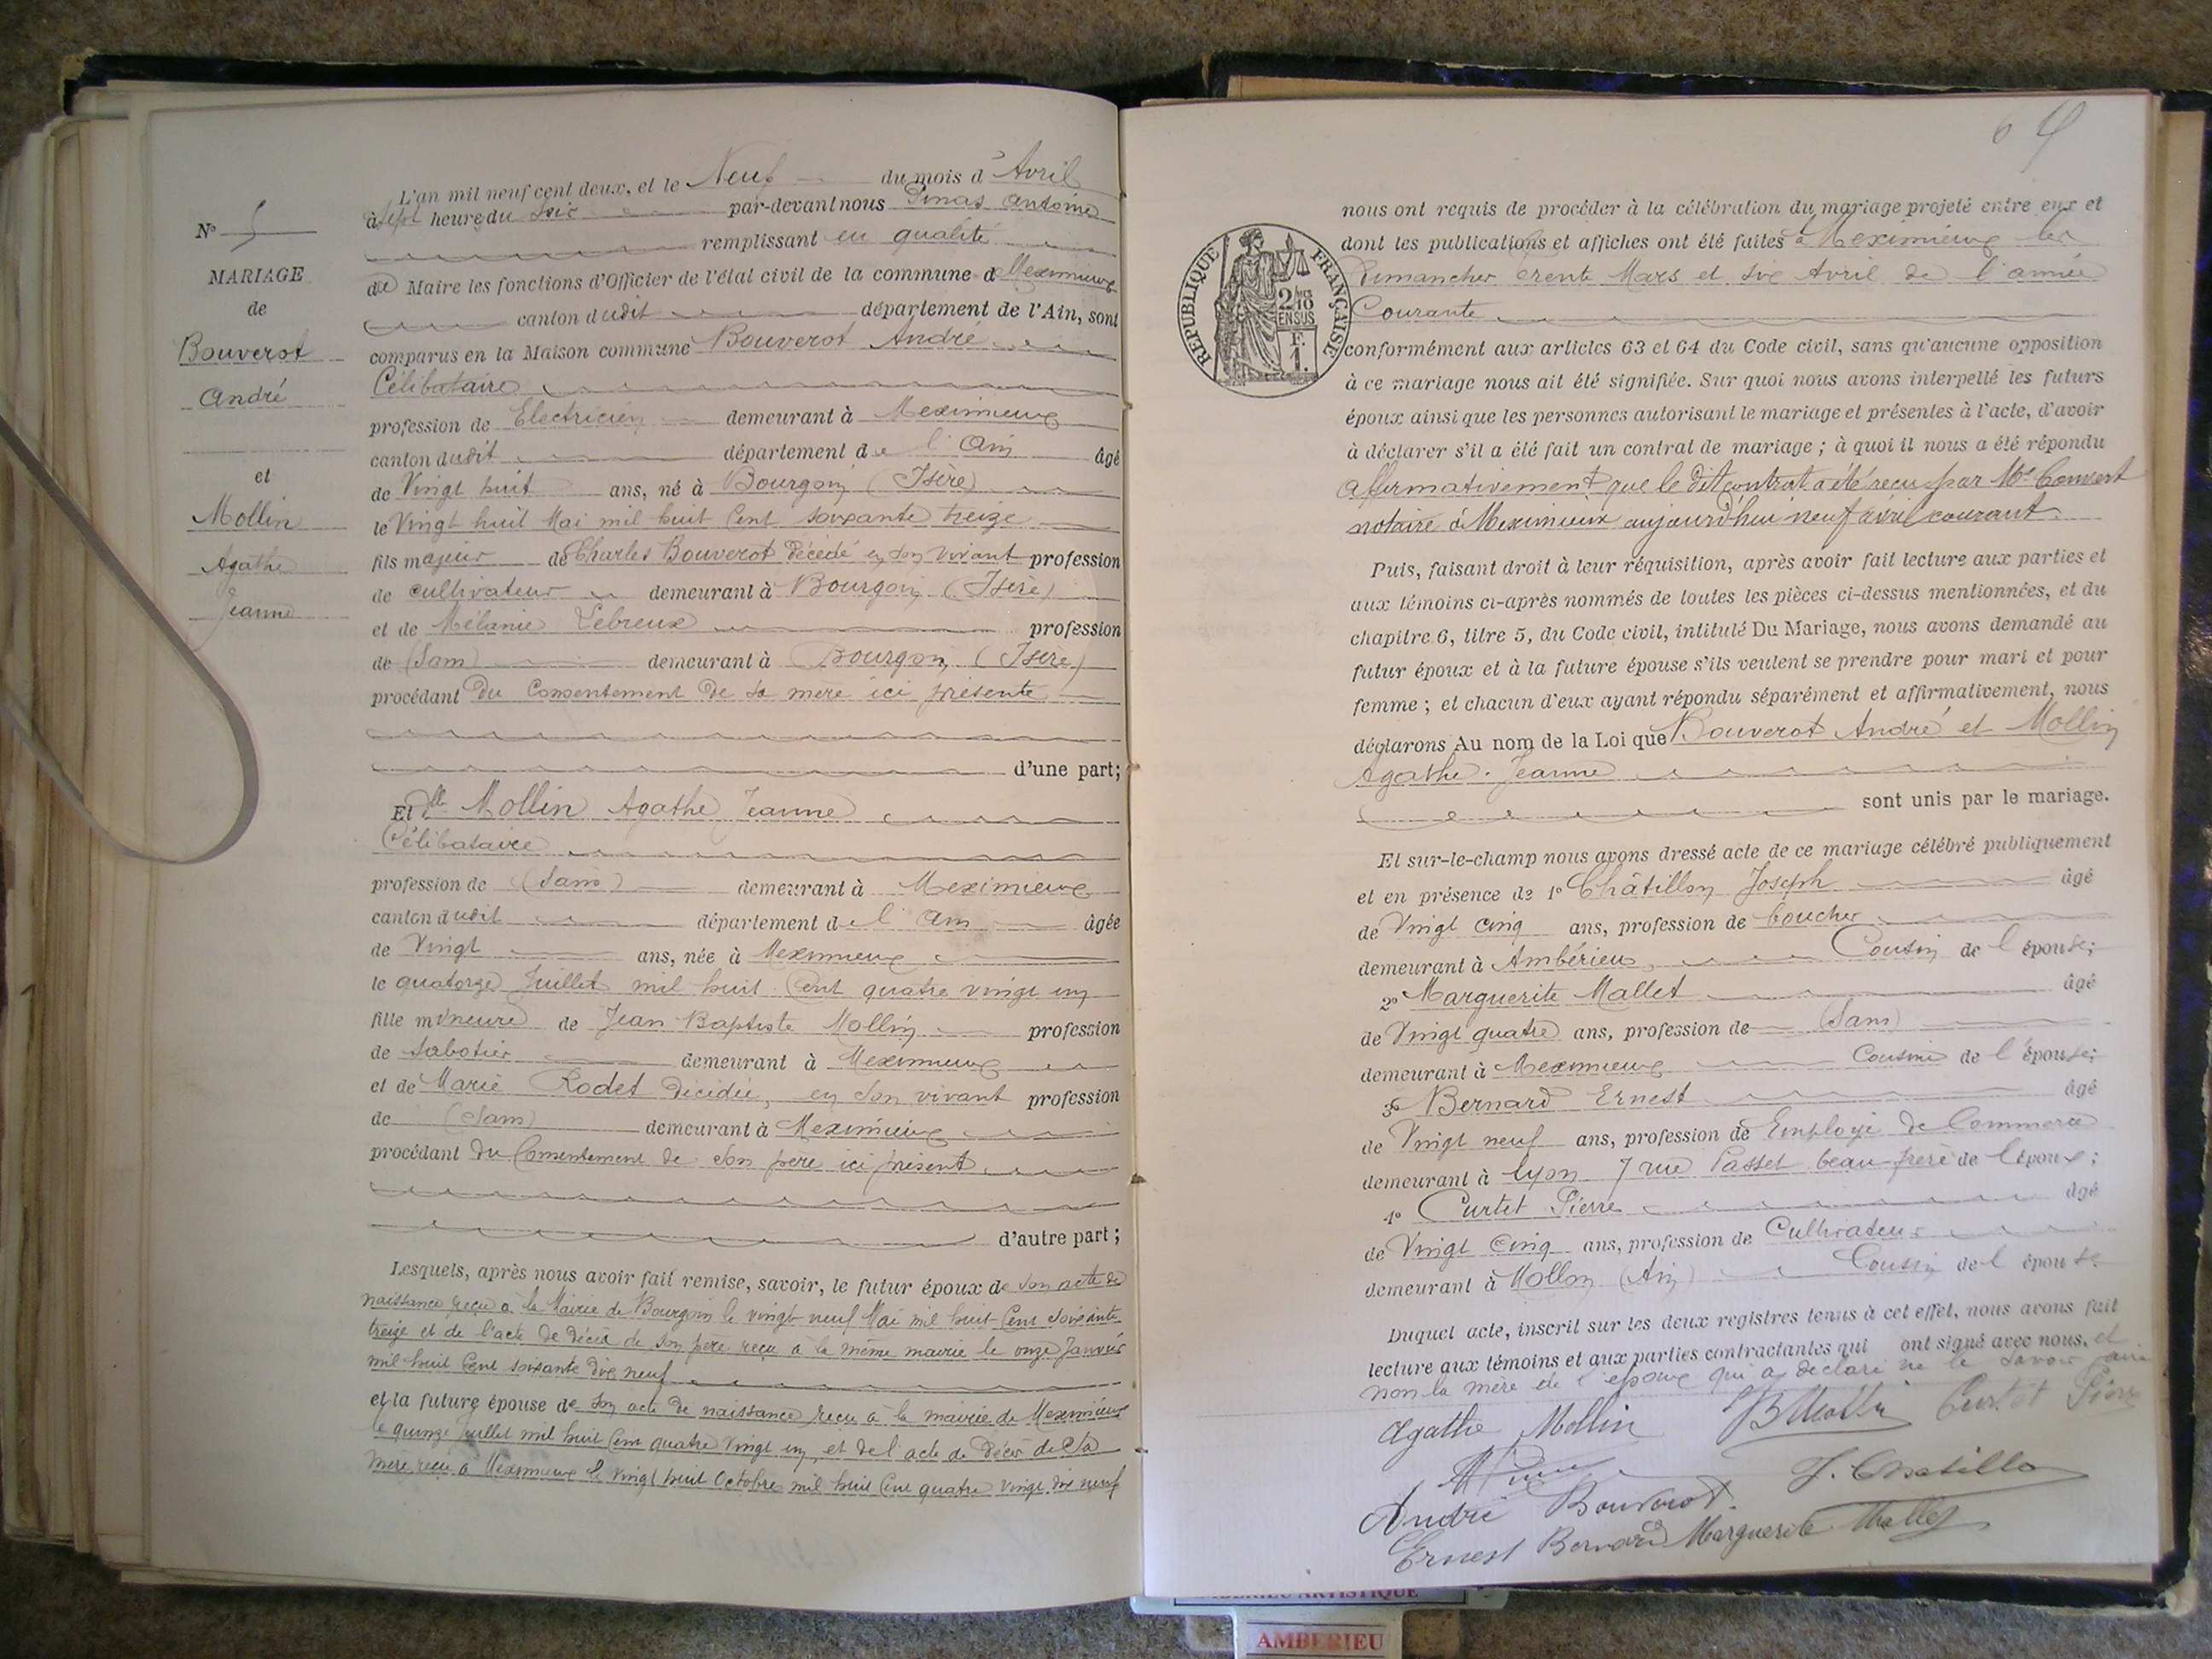 L'an mil neuf cent deux, et le Neuf du mois d'Avril
à sept heure du soir par-devant nous Pinas Antoine
remplissant en qualité
de Maire les fonctions d'Officier de l'état civil de la commune de Meximieux
canton dudit département de l'Ain, sont
comparus en la Maison commune Bouverot André
Célibataire
profession de Electricien demeurant à Meximieux
canton dudit département de l'Ain âgé
de Vingt huit ans, né à Bourgoin (Isère)
le Vingt huit Mai mil huit Cent soixante treize
fils majeur de Charles Bouverot décédé en son vivant profession
de cultivateur demeurant à Bourgoin (Isère)
et de Mélanie Lebreux profession
de (Sans) demeurant à Bourgoin (Isère)
procédant du Consentement de sa mère ici présente
d'une part;
Et Dlle Mollin Agathe Jeanne
Célibataire
profession de (Sans) demeurant à Meximieux
canton dudit département de l'Ain âgée
de Vingt ans, née à Meximieux
le quatorze Juillet mil huit Cent quatre vingt un
fille mineure de Jean Baptiste Mollin profession
de Sabotier demeurant à Meximieux
et de Marie Rodet décédée, en son vivant profession
de (Sans) demeurant à Meximieux
procédant du Consentement de son père ici présent
d'autre part;
Lesquels, après nous avoir fait remise, savoir, le futur époux de son acte de
naissance reçu à la Mairie de Bourgoin le vingt neuf Mai mil huit Cent soixante
treize et de l'acte de décès de son père reçu à la même mairie le onze Janvier
mil huit Cent soixante dix neuf
et la future épouse de son acte de naissance reçu à la mairie de Meximieux
le quinze Juillet mil huit Cent quatre vingt un, et de l'acte de décès de sa
mère reçu à Meximieux le vingt huit Octobre mil huit Cent quatre vingt dix neuf
N° 5
MARIAGE
de
Bouverot
André
et
Mollin
Agathe
Jeanne
REPUBLIQUE FRANÇAISE
2/10
EN SUS
F.
1.
nous ont requis de procéder à la célébration du mariage projeté entre eux et
dont les publications et affiches ont été faites à Meximieux les
Dimanches trente Mars et six Avril de l'année
Courante
conformément aux articles 63 et 64 du Code civil, sans qu'aucune opposition
à ce mariage nous ait été signifiée. Sur quoi nous avons interpellé les futurs
époux ainsi que les personnes autorisant le mariage et présentes à l'acte, d'avoir
à déclarer s'il a été fait un contrat de mariage ; à quoi il nous a été répondu
affirmativement que le dit contrat a été reçu par Me Convert
notaire à Meximieux aujourd'hui neuf avril courant.
Puis, faisant droit à leur réquisition, après avoir fait lecture aux parties et
aux témoins ci-après nommés de toutes les pièces ci-dessus mentionnées, et du
chapitre 6, titre 5, du Code civil, intitulé Du Mariage, nous avons demandé au
futur époux et à la future épouse s'ils veulent se prendre pour mari et pour
femme ; et chacun d'eux ayant répondu séparément et affirmativement, nous
déclarons Au nom de la Loi que Bouverot André et Mollin
Agathe Jeanne
sont unis par le mariage.
Et sur-le-champ nous avons dressé acte de ce mariage célébré publiquement
et en présence de 1° Châtillon Joseph âgé
de Vingt cinq ans, profession de boucher
demeurant à Ambérieu, Cousin de l'épouse;
2° Marguerite Mallet âgé
de Vingt quatre ans, profession de (Sans)
demeurant à Meximieux Cousine de l'épouse;
3° Bernard Ernest âgé
de Vingt neuf ans, profession de Employé de Commerce
demeurant à Lyon 7 rue Passet beau-frère de l'époux;
4° Curtet Pierre âgé
de Vingt Cinq ans, profession de Cultivateur
demeurant à Mollon (Ain) Cousin de l'épouse.
Duquel acte, inscrit sur les deux registres tenus à cet effet, nous avons fait
lecture aux témoins et aux parties contractantes qui ont signé avec nous, et
non la mère de l'époux qui a déclaré ne le savoir faire
Agathe Mollin Curtet Pierre
J. Chatillon
André Bouverot.
Ernest Bernard Marguerite Mallet
AMBERIEU ARTISTIQUE
AMBERIEU